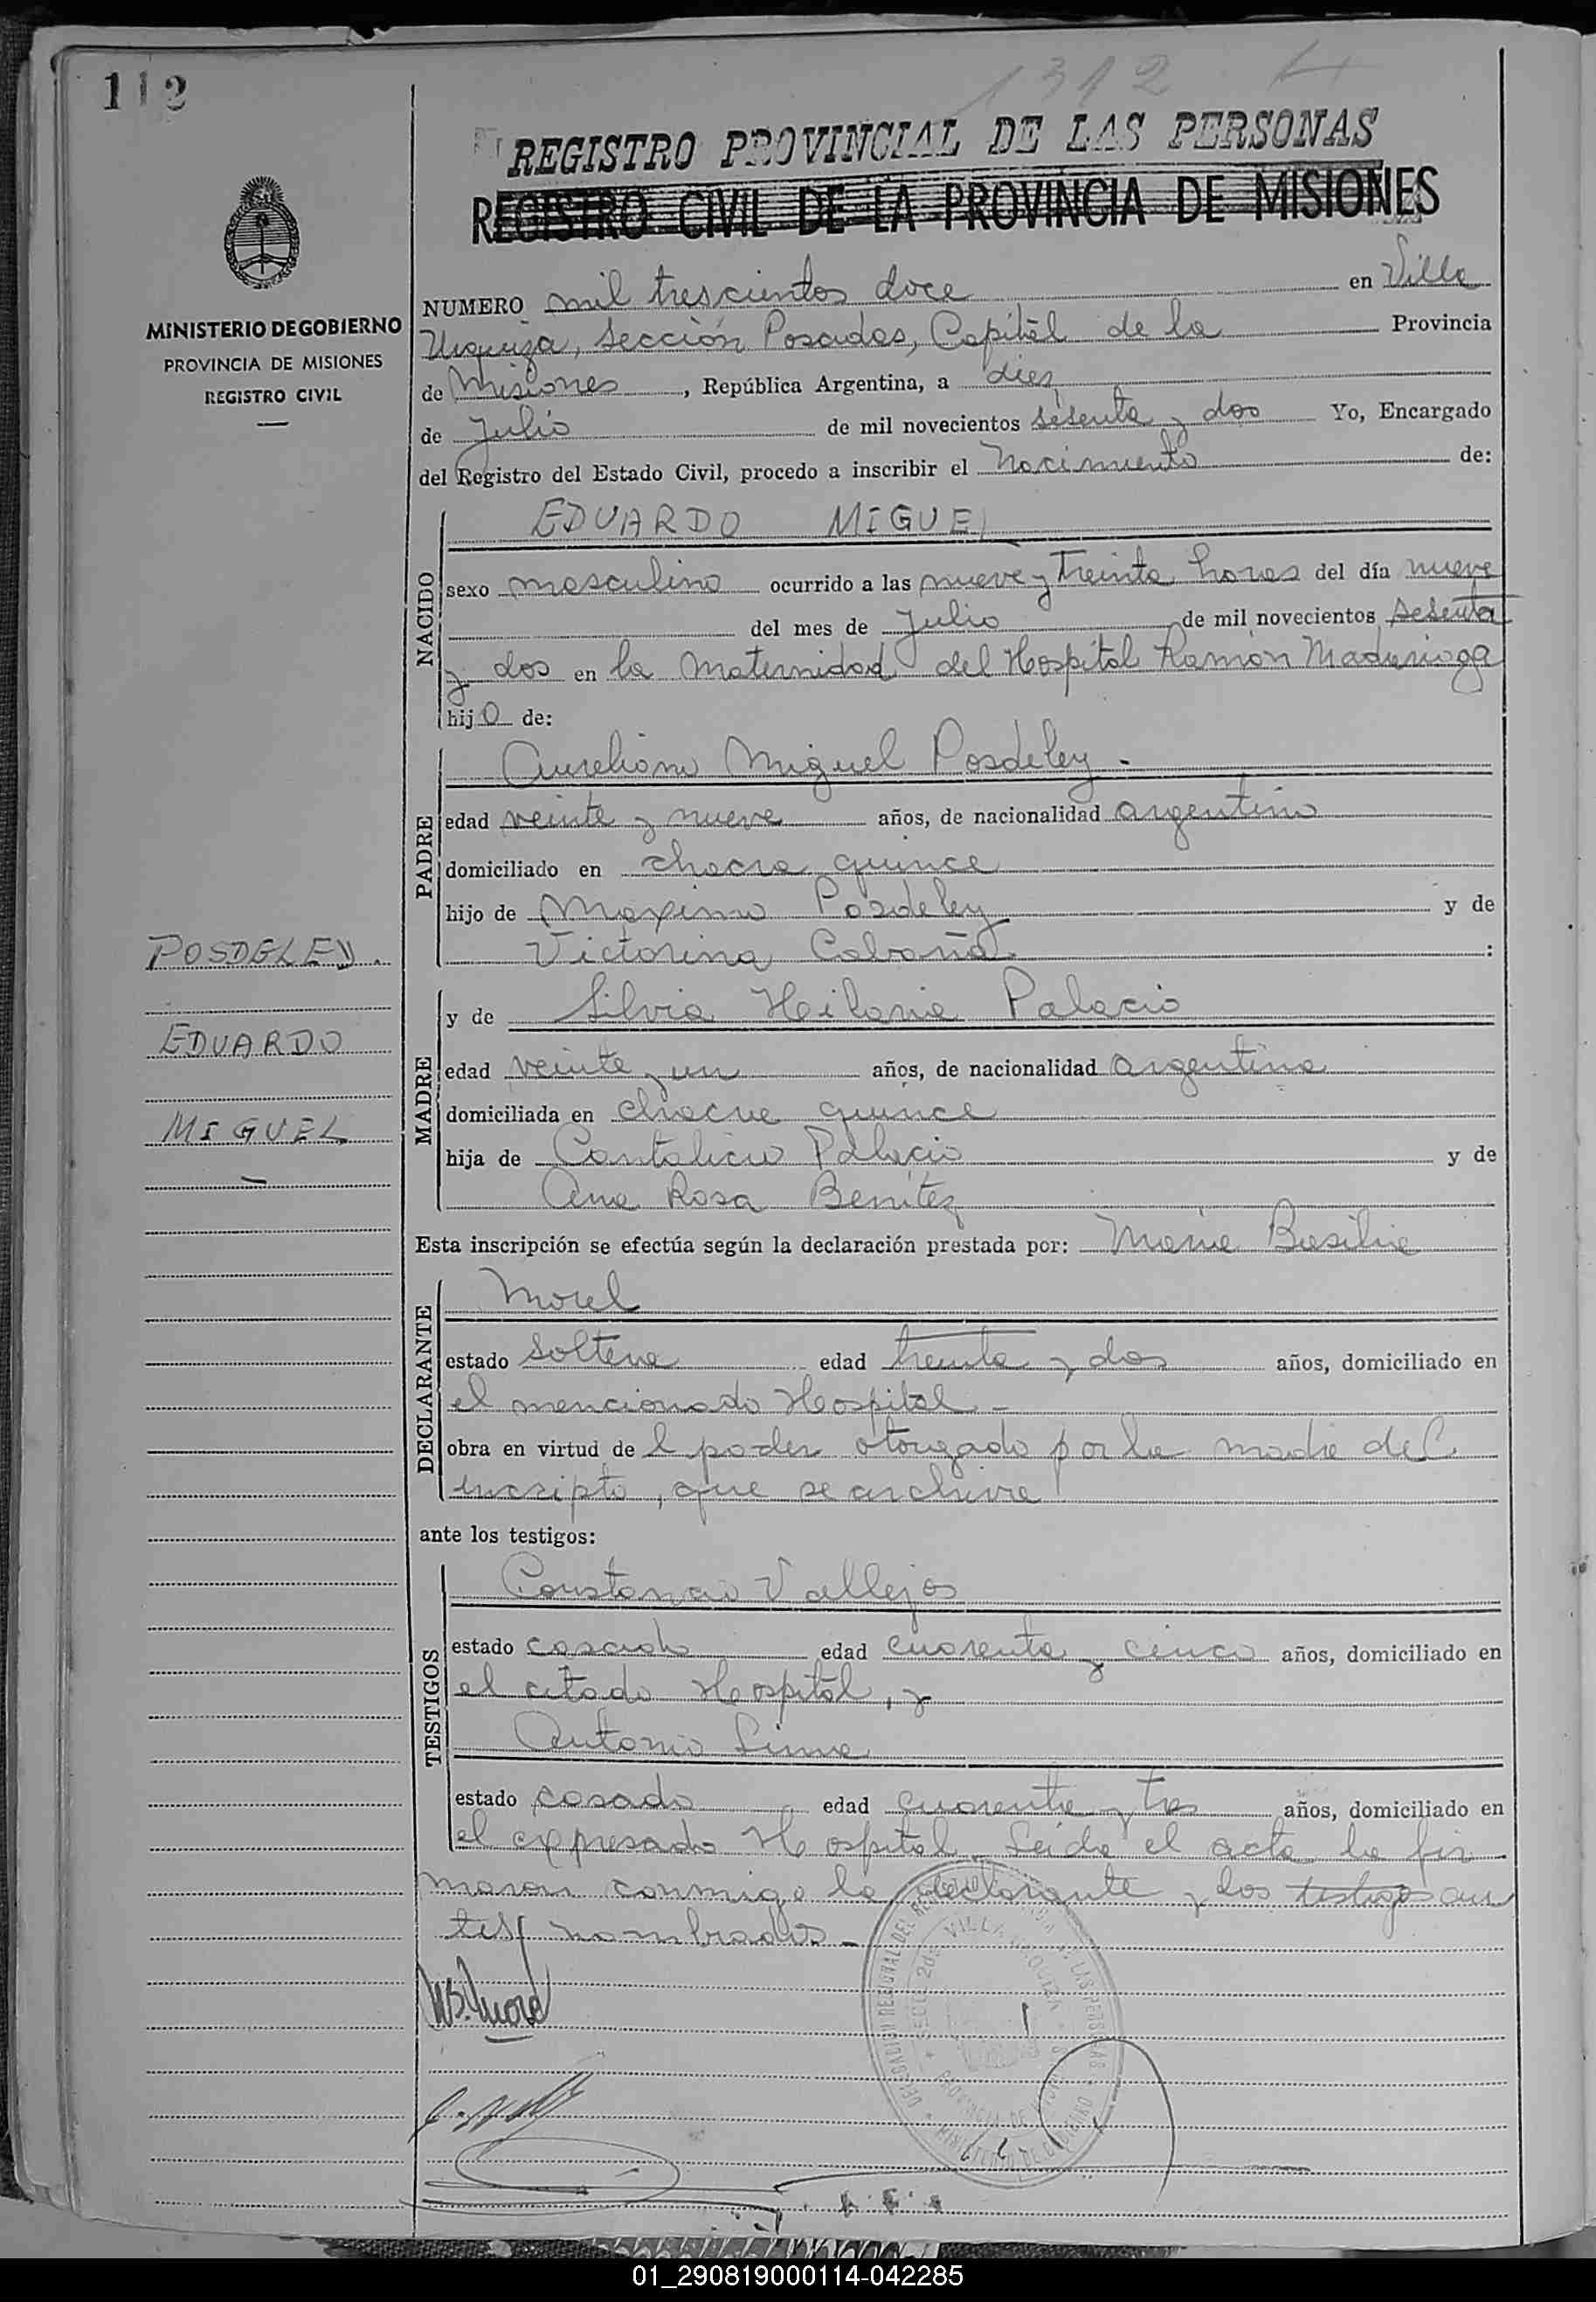 112
1312
REGISTRO PROVINCIAL DE LAS PERSONAS
REGISTRO CIVIL DE LA PROVINCIA DE MISIONES
MINISTERIO DE GOBIERNO
PROVINCIA DE MISIONES
REGISTRO CIVIL
NUMERO mil trescientos doce en Villa
Urquiza, Sección Posadas, Capital de la Provincia
de Misiones, República Argentina, a diez
de Julio de mil novecientos sesenta y dos Yo, Encargado
del Registro del Estado Civil, procedo a inscribir el Nacimiento de:
NACIDO
EDUARDO MIGUEL
sexo masculino ocurrido a las nueve y treinta horas del día nueve
del mes de Julio de mil novecientos sesenta
y dos en la Maternidad del Hospital Ramón Madariaga
hijo de:
PADRE
Aureliano Miguel Posdeley.-
edad veinte y nueve años, de nacionalidad argentino
domiciliado en chacra quince
hijo de Maximo Posdeley y de
Victorina Cabaña :
POSDELEY.
EDUARDO
MIGUEL
MADRE
y de Silvia Hilaria Palacio
edad veinte y un años, de nacionalidad argentina
domiciliada en chacra quince
hija de Cantalicio Palacio y de
Ana Rosa Benitez
Esta inscripción se efectúa según la declaración prestada por: Maria Basilia
DECLARANTE
Morel
estado soltera edad treinta y dos años, domiciliado en
el mencionado Hospital.-
obra en virtud de l poder otorgado por la madre del
inscripto, que se archiva
ante los testigos:
TESTIGOS
Constancio Vallejos
estado casado edad cuarenta y cinco años, domiciliado en
el citado Hospital, y
Antonio Lima
estado casado edad cuarenta y tres años, domiciliado en
el expresado Hospital. Leida el acta la fir
maron conmigo la declarante y los testigos an
tes nombrados.-
M B. Morel
VILLA URQUIZA
01_290819000114-042285